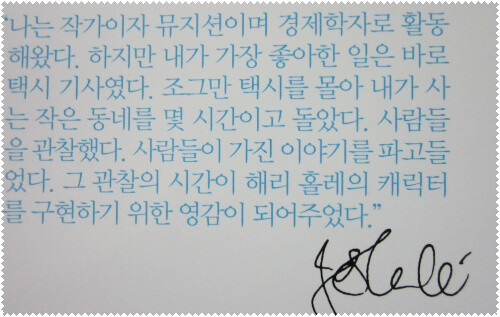 “나는 작가이자 뮤지션이며 경제학자로 활동
해왔다. 하지만 내가 가장 좋아한 일은 바로
택시 기사였다. 조그만 택시를 몰아 내가 사
는 작은 동네를 몇 시간이고 돌았다. 사람들
을 관찰했다. 사람들이 가진 이야기를 파고들
었다. 그 관찰의 시간이 해리 홀레의 캐릭터
를 구현하기 위한 영감이 되어주었다.”